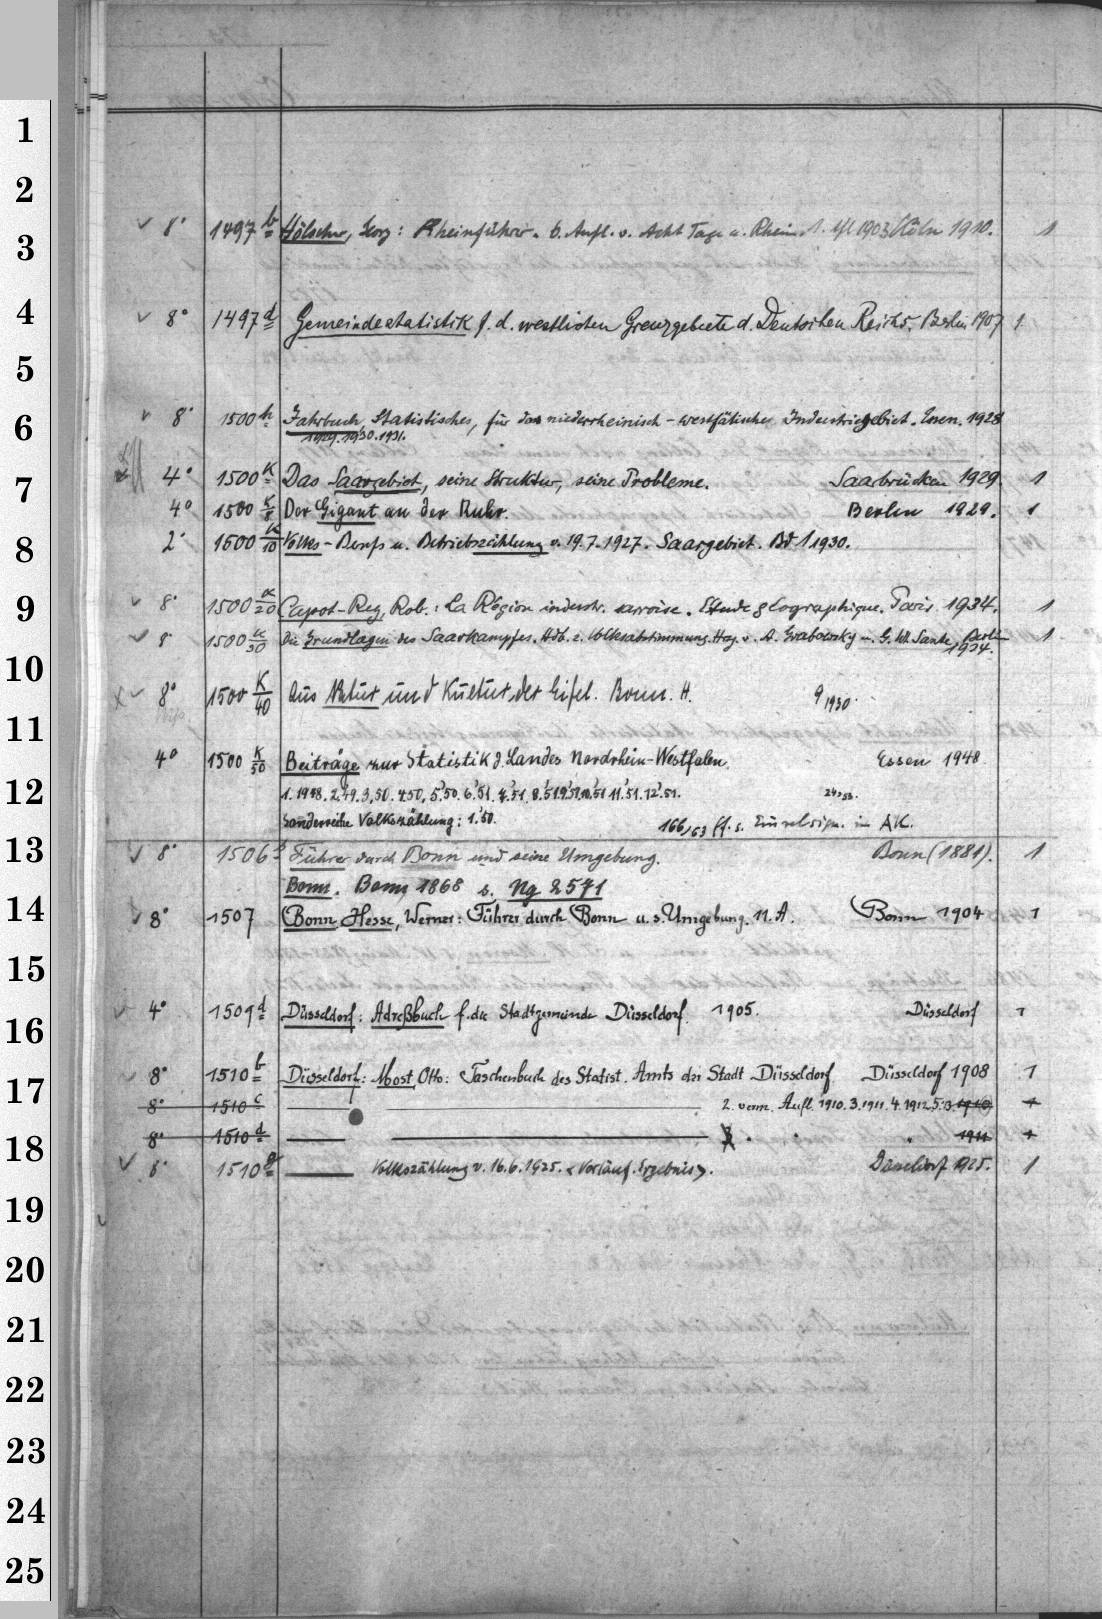 8° 1497 b Hölscher, Georg: Rheinführer. 6. Aufl. v. Acht Tage a. Rhein 1. Köln 1910. 1
8° 1497 d Gemeindestatistik f. d. westlichen Grenzgebiete d. Deutschen Reichs. Berlin 1907 1
8° 1500 h Jahrbuch, Statistisches, für das niederrheinisch-westfälische Industriegebiet. Essen. 1928
1929. 1930. 1931.
4° 1500 K Das Saargebiet, seine Struktur, seine Probleme. Saarbrücken 1929. 1
4° 1500 K/8 Der Gigant an der Ruhr. Berlin 1929. 1
2° 1500 K/10 Volks-Berufs u. Betriebszählung v. 19.7.1927. Saargebiet. Bd 1 1930.
8° 1500 /20 Capot-Rey, Rob.: La Région industr. sarroise. Etude géographique. Paris 1934. 1
8° 1500 /30 Die Grundlagen des Saarkampfes. Hdb. z. Volksabstimmung. Hrg. v. A. Grabowsky u. G. W. Sante. Berlin 1934. 1
8° 1500 K/40 Aus Natur und Kultur der Eifel. Bonn. H. 9 1930.
4° 1500 K/50 Beiträge zur Statistik d. Landes Nordrhein-Westfalen. Essen 1948
1. 1948. 2,49. 3,50. 4,50. 5,50. 6,51. 7,51. 8,51. 9,51. 10,51. 11,51. 12,51.
Sonderreihe Volkszählung: 1,50. 166,63 ff. s. Einzelsign. im AK.
8° 1506 Führer durch Bonn und seine Umgebung. Bonn (1881). 1
Bonn. Bonn 1868 s. Ng 2571
8° 1507 Bonn Hesse, Werner: Führer durch Bonn u. s. Umgebung. 11. A. Bonn 1904 1
4° 1509 d Düsseldorf: Adreßbuch f. die Stadtgemeinde Düsseldorf 1905. Düsseldorf 1
8° 1510 b Düsseldorf: Most, Otto: Taschenbuch des Statist. Amts der Stadt Düsseldorf Düsseldorf 1908 1
8° 1510 c 2. verm. Aufl. 1910. 3. 1911. 4. 1912. 5. 13 1910 1
8° 1510 d 3. " " 1911 1
8° 1510 Volkszählung v. 16.6.1925. <Vorläuf. Ergebnis>. Düsseldorf 1925. 1
1
2
3
4
5
6
7
8
9
10
11
12
13
14
15
16
17
18
19
20
21
22
23
24
25